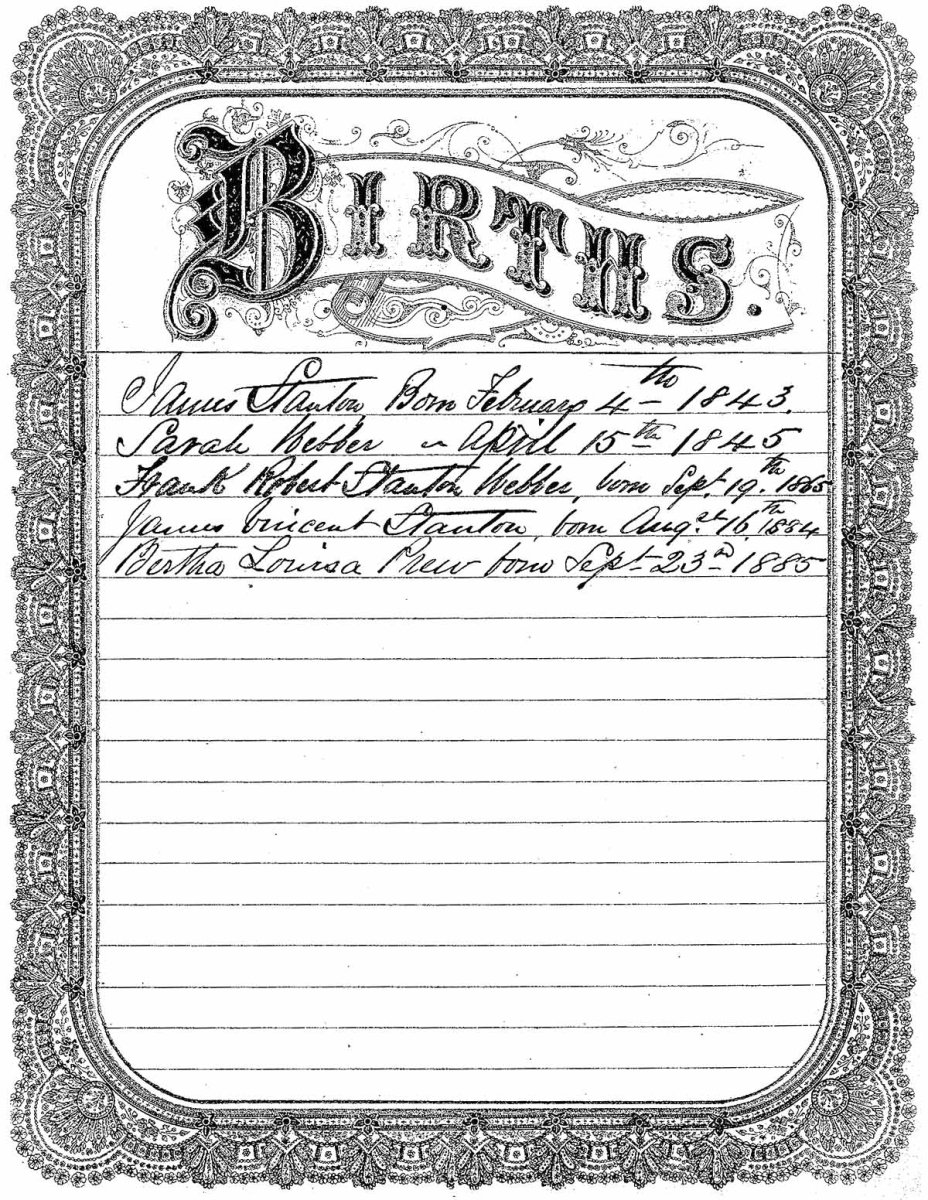 BIRTHS.
James Stanton, Born February 4th 1843.
Sarah Webber " April 15th 1845
Frank Robert Stanton Webber, born Sept. 19.th 1865
James Vincent Stanton, born Aug.st 16,th 1884
Bertha Louisa Prew born Sept 23d 1885